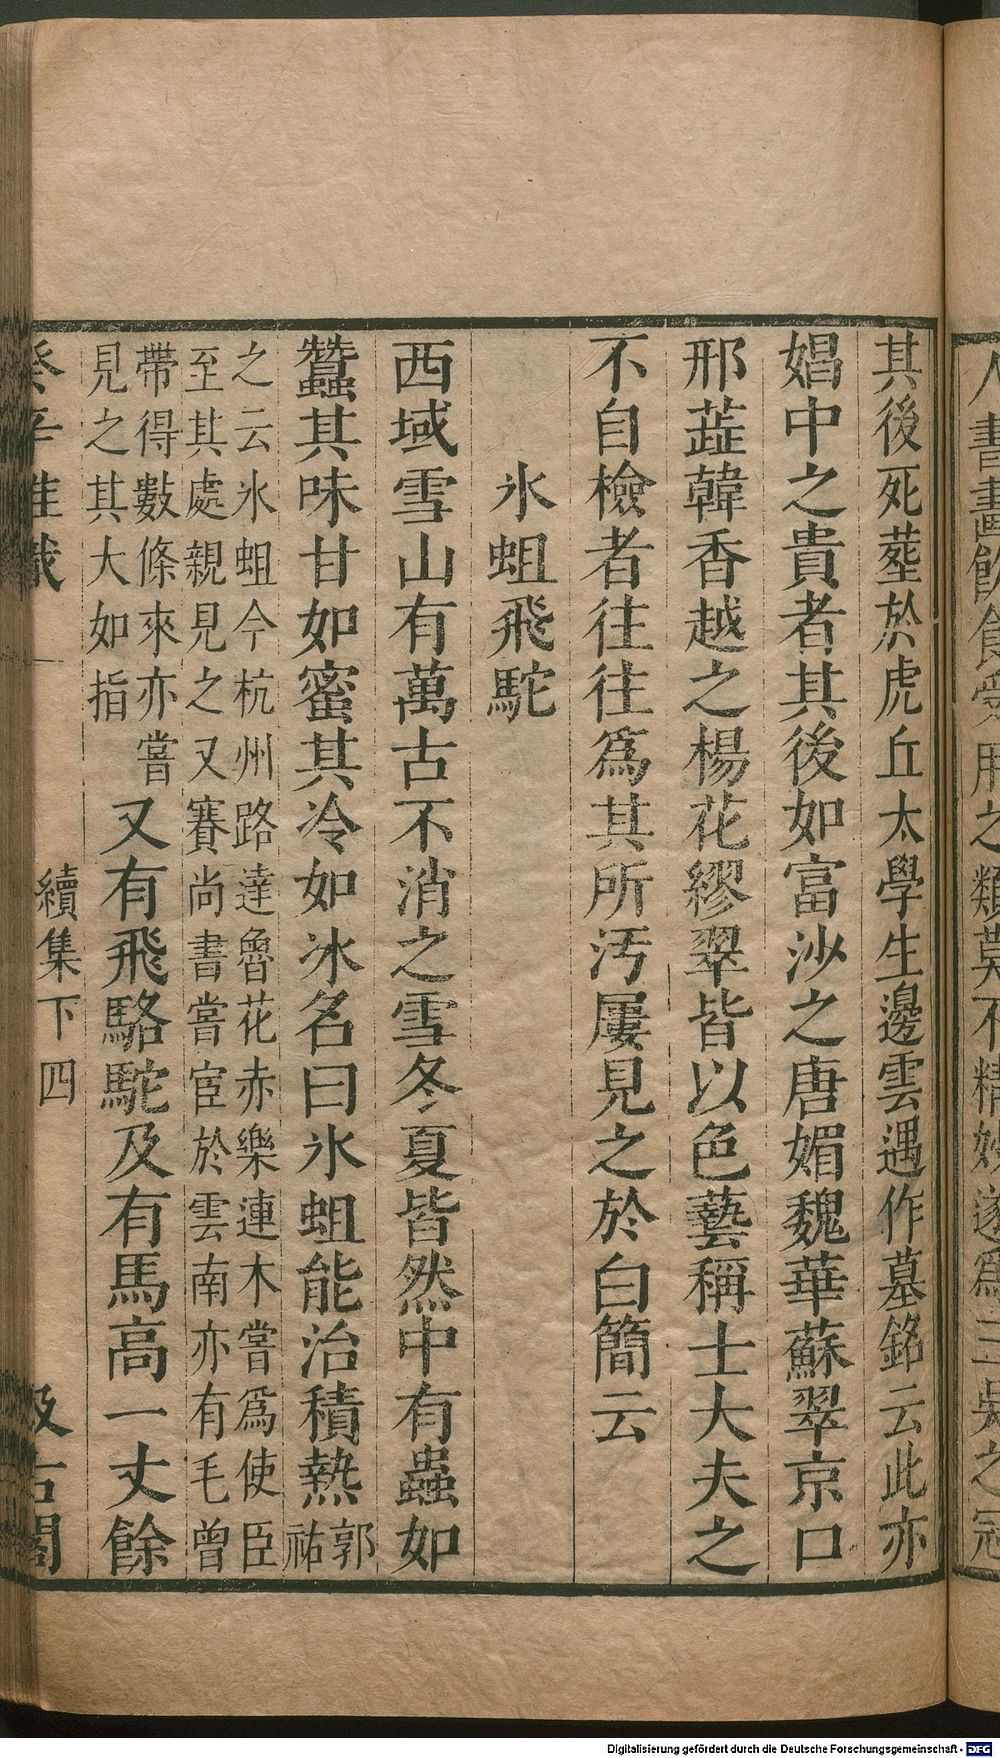 人書畫飲食受用之類莫不精妙遂為三吳之冠
其後死塟於虎丘太學生邊雲遇作墓銘云此亦
娼中之貴者其後如富沙之唐媚魏華蘇翠京口
邢蕋韓香越之楊花繆翠皆以色藝稱士大夫之
不自檢者往往爲其所汚屢見之於白簡云
氷蛆飛駝
西域雪山有萬古不消之雪冬夏皆然中有蟲如
蠶其味甘如蜜其冷如冰名曰氷蛆能治積熱
郭
祐
之云氷蛆今杭州路達魯花赤樂連木嘗爲使臣
至其處親見之又賽尚書嘗宦於雲南亦有毛曾
帶得數條來亦嘗
見之其大如指
又有飛駱駝及有馬高一丈餘
癸辛雜識
續集下
四
汲古閣
Digitalisierung gefördert durch die Deutsche Forschungsgemeinschaft - DFG